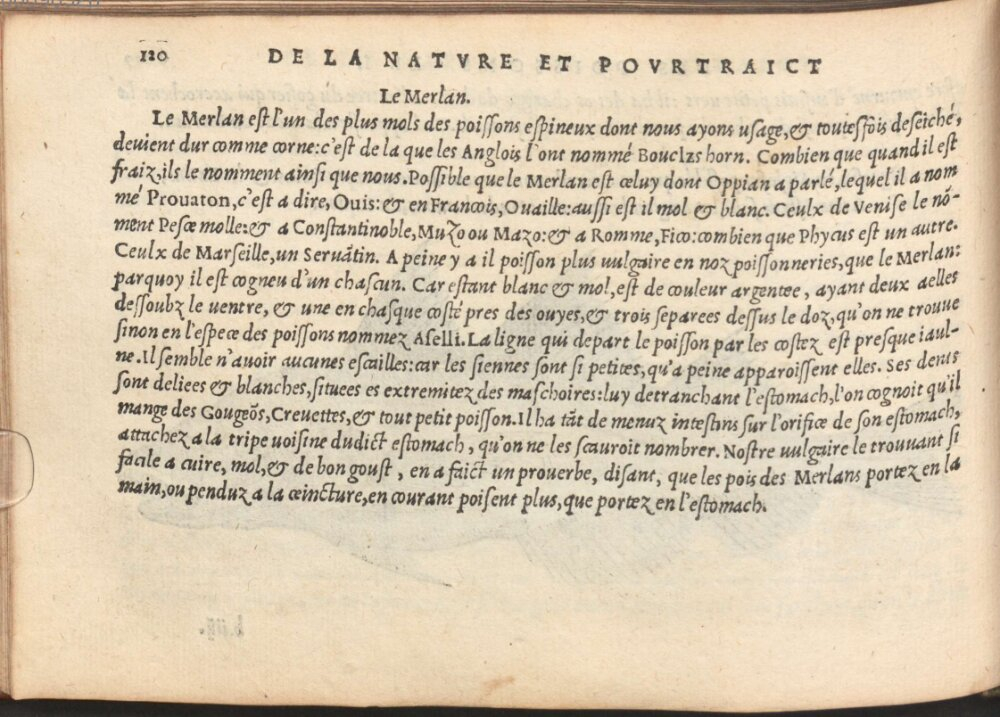 120 DE LA NATVRE ET POVRTRAICT
Le Merlan.
Le Merlan est l'un des plus mols des poissons espineux dont nous ayons usage,& toutesfois deseiché,
deuient dur comme corne:c'est de la que les Anglois l'ont nommé Bouclzs horn. Combien que quand il est
fraiz,ils le nomment ainsi que nous.Possible que le Merlan est celuy dont Oppian a parlé,lequel il a nom
mé Prouaton,c'est a dire, Ouis:& en Francois,Ouaille:aussi est il mol & blanc. Ceulx de Venise le nõ-
ment Pesce molle:& a Constantinoble, Muzo ou Mazo:& a Romme,Fico:combien que Phycus est un autre.
Ceulx de Marseille,un Seruãtin. A peine y a il poisson plus uulgaire en noz poissonneries,que le Merlan:
parquoy il est cogneu d'un chascun. Car estant blanc & mol,est de couleur argentee, ayant deux aelles
dessoubz le uentre, & une en chasque costé pres des ouyes,& trois separees dessus le doz,qu'on ne trouue
sinon en l'espece des poissons nommez Aselli.La ligne qui depart le poisson par les costez est presque iaul-
ne.Il semble n'auoir aucunes escailles:car les siennes sont si petites,qu'a peine apparoissent elles. Ses dents
sont deliees & blanches,situees es extremitez des maschoires:luy detranchant l'estomach,l'on cognoit qu'il
mange des Gougeõs,Creuettes,& tout petit poisson.Il ha tãt de menuz intestins sur l'orifice de son estomach,
attachez a la tripe uoisine dudict estomach, qu'on ne les scauroit nombrer. Nostre uulgaire le trouuant si
facile a cuire, mol,& de bon goust, en a faict un prouerbe, disant, que les pois des Merlans portez en la
main,ou penduz a la ceincture,en courant poisent plus,que portez en l'estomach.